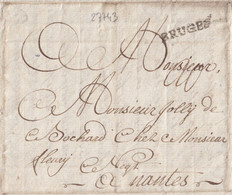 87743
BRUGES
A Monsieur
Monsieur Jolly de
Bochard Chez Monsieur
fleury Negt.
A nantes